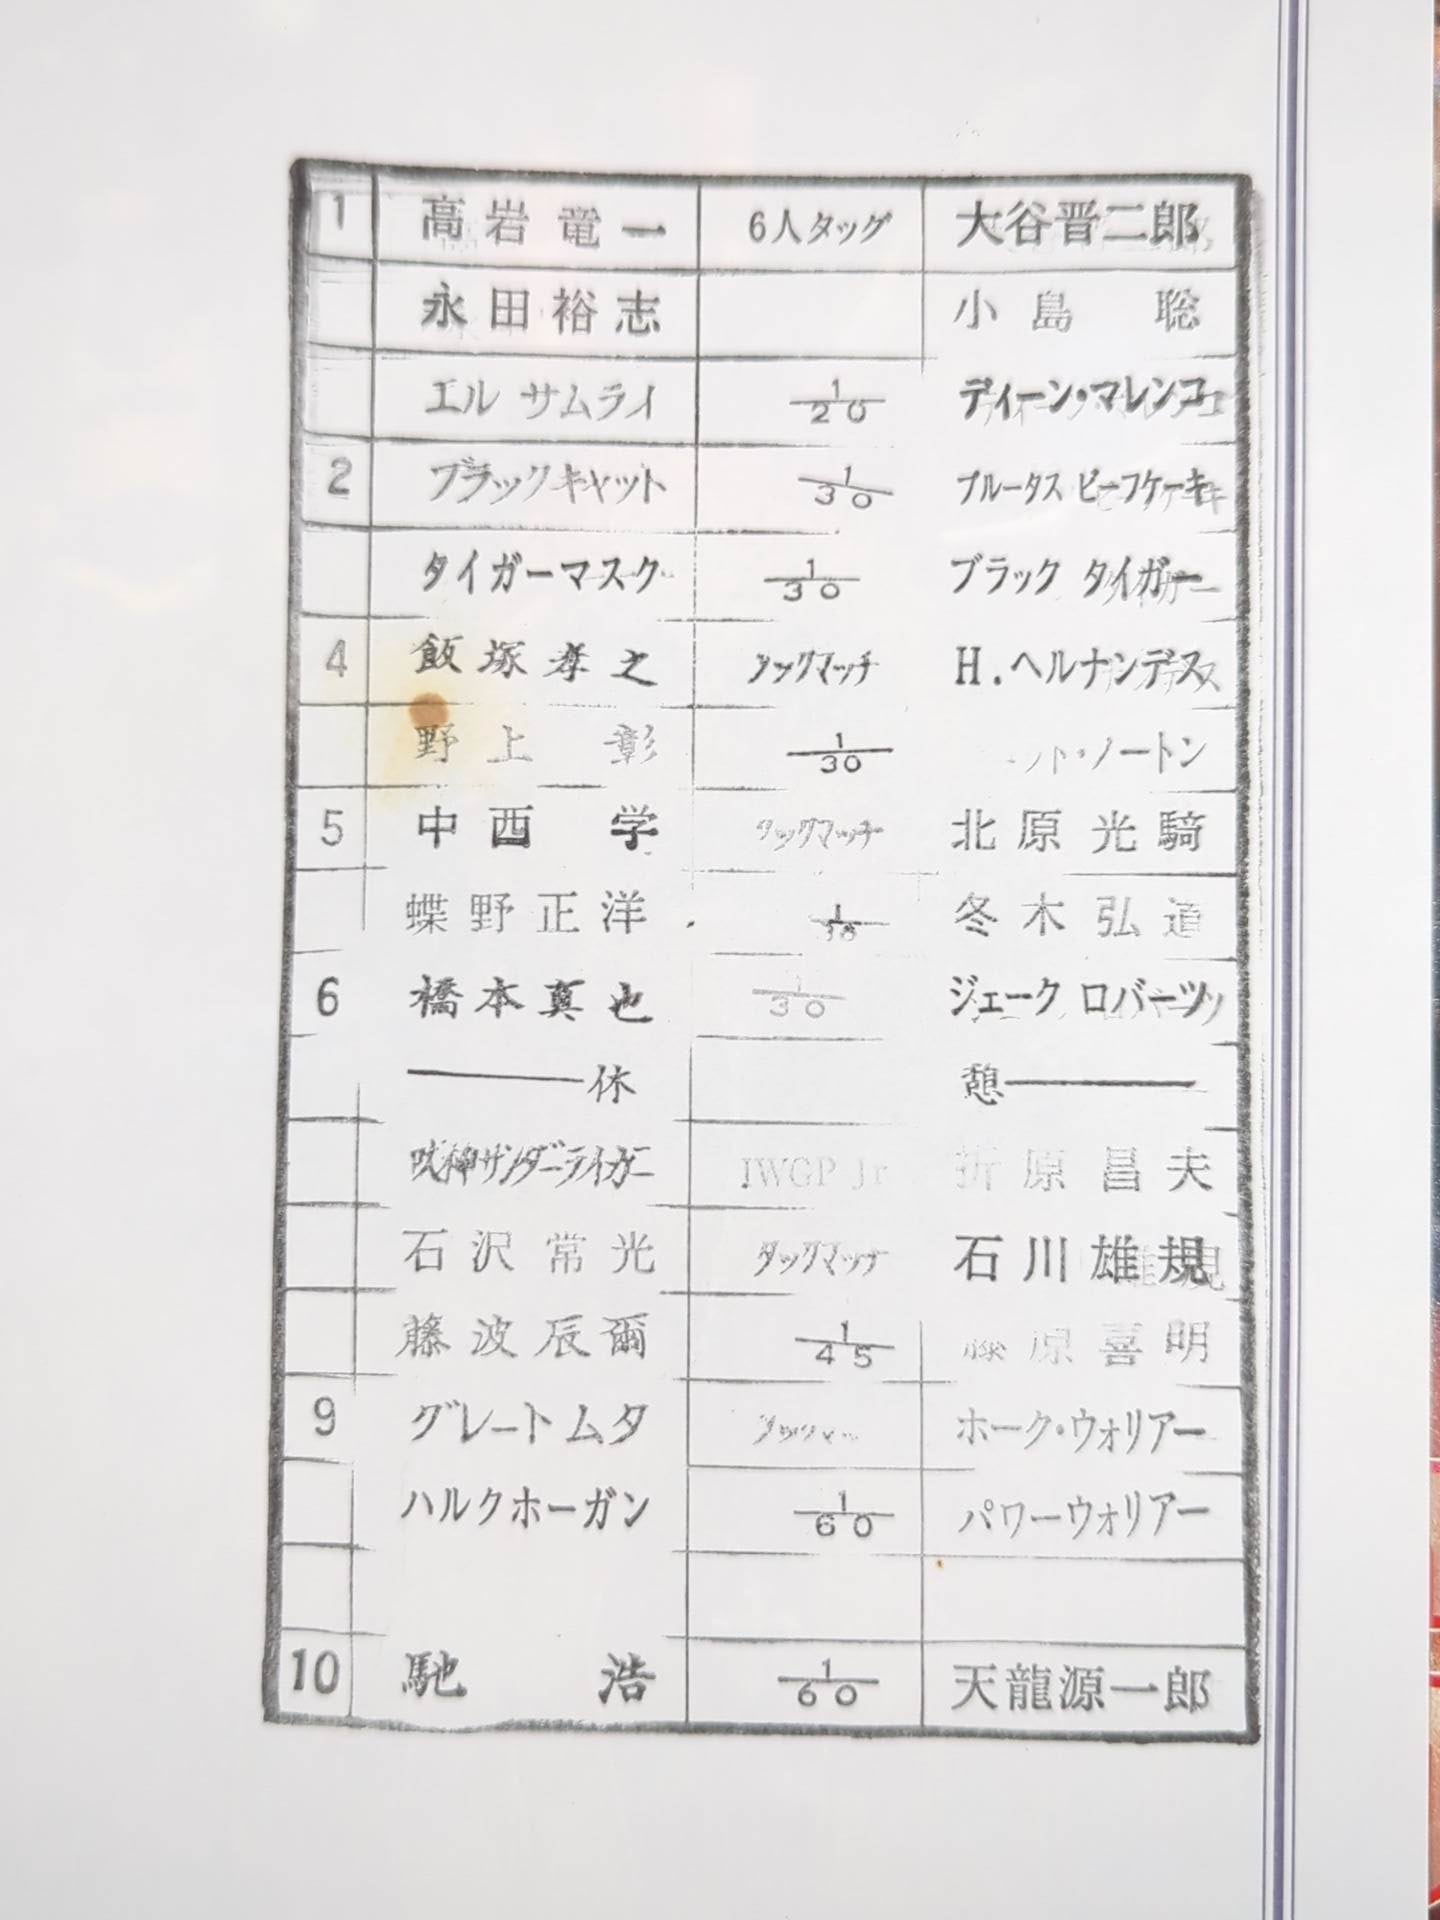 1 高岩竜一 6人タッグ 大谷晋二郎
永田裕志 小島 聡
エル サムライ 1/20 ディーン・マレンコ
2 ブラックキャット 1/30 ブルータス ビーフケーキ
タイガーマスク 1/30 ブラック タイガー
4 飯塚孝之 タッグマッチ H.ヘルナンデス
野上 彰 1/30 ノートン
5 中西 学 タッグマッチ 北原光騎
蝶野正洋 1/30 冬木弘道
6 橋本真也 1/30 ジェーク ロバーツ
休 憩
獣神サンダーライガー IWGP Jr 折原昌夫
石沢常光 タッグマッチ 石川雄規
藤波辰爾 1/45 藤原喜明
9 グレートムタ ホーク・ウォリアー
ハルクホーガン 1/60 パワーウォリアー
10 馳 浩 1/60 天龍源一郎